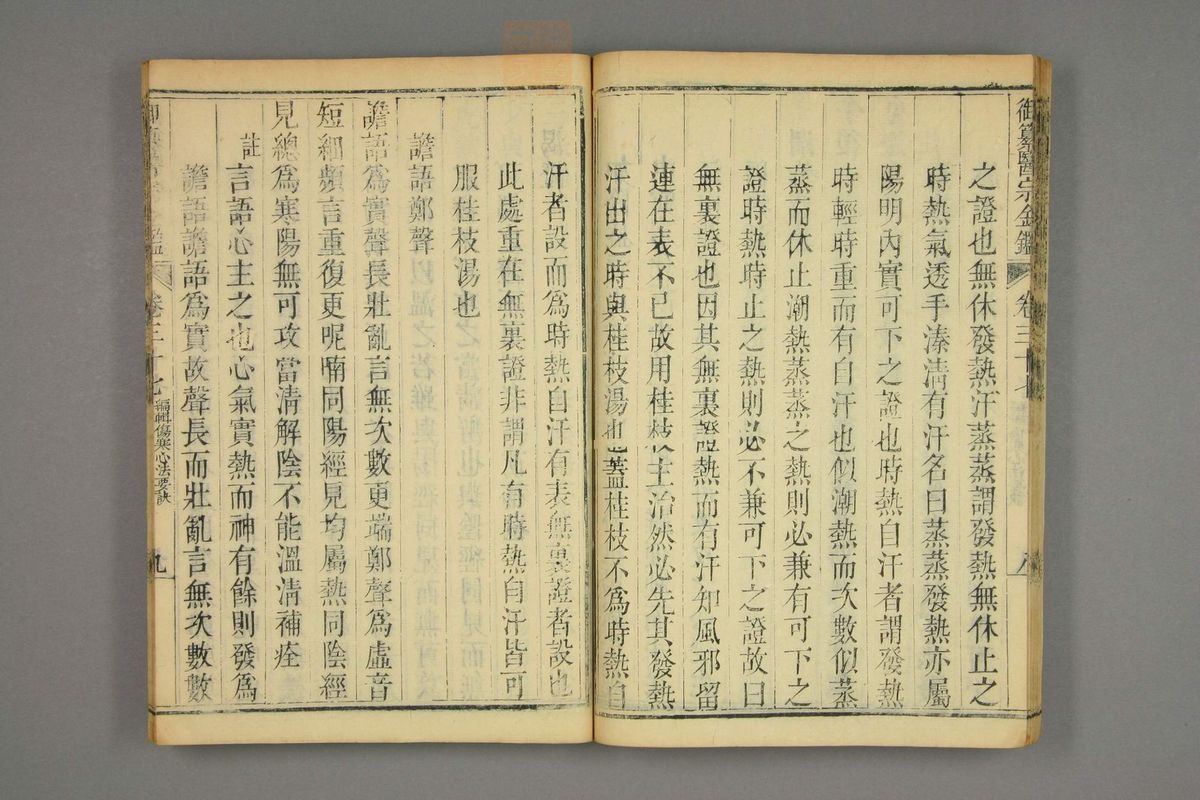 御纂醫宗金鑑 卷三十七 八
之證也無休發熱汗蒸蒸謂發熱無休止之
時熱氣透手溱溱有汗名曰蒸蒸發熱亦屬
陽明內實可下之證也時熱自汗者謂發熱
時輕時重而有自汗也似潮熱而次數似蒸
蒸而休止潮熱蒸蒸之熱則必兼有可下之
證時熱時止之熱則必不兼可下之證故曰
無裏證也因其無裏證熱而有汗知風邪留
連在表不已故用桂枝主治然必先其發熱
汗出之時與桂枝湯也蓋桂枝不爲時熱自
汗者設而爲時熱自汗有表無裏證者設也
此處重在無裏證非謂凡有時熱自汗皆可
服桂枝湯也
譫語鄭聲
譫語爲實聲長壯亂言無次數更端鄭聲爲虛音
短細頻言重復更呢喃同陽經見均屬熱同陰經
見總爲寒陽無可攻當清解陰不能溫清補痊
註 言語心主之也心氣實熱而神有餘則發爲
譫語譫語爲實故聲長而壯亂言無次數數
卷三十七 編輯傷寒心法要訣 九